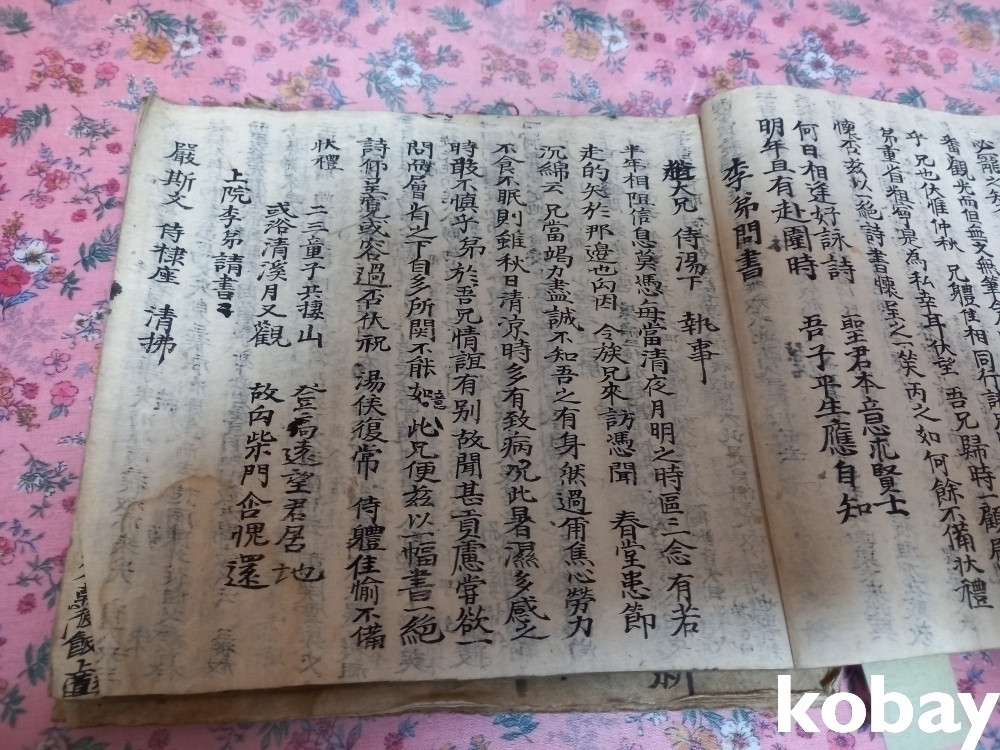 番觀光而但並文無筆
乎兄也伏惟仲秋 兄體使相同行
弟重省粗寧是爲私幸耳伏望 吾兄歸時一顧
懷本玆以一絶詩書懷呈之一笑丙之如何餘不備狀禮
何日相逢好詠詩 聖君本意求賢士
明年且有赴圍時 吾子平生應自知
李弟問書
大兄侍湯下 執事
半年相阻信息莫憑每當清夜月明之時區二念有若
走的矢於那邊也內因 令族兄來訪憑聞 春堂患節
沉綿云 兄當竭力盡誠不知吾之有身然過用焦心勞力
不食不眠則雖秋日清凉時多有致病况此暑濕多感之
時敢不慎乎弟於吾兄情誼有別故聞甚貢慮嘗欲一
問而層省之下自多所関不能如意此兄便玆以一幅書一絶
詩仰呈覽或容過否伏祝 湯候復常 侍軆佳愉不備
狀禮 二三童子共捿山 登高遠望君居地
或浴清溪月又觀 故向柴門含愧還
上院李弟請書
嚴斯文 侍棣座 清拂
kobay